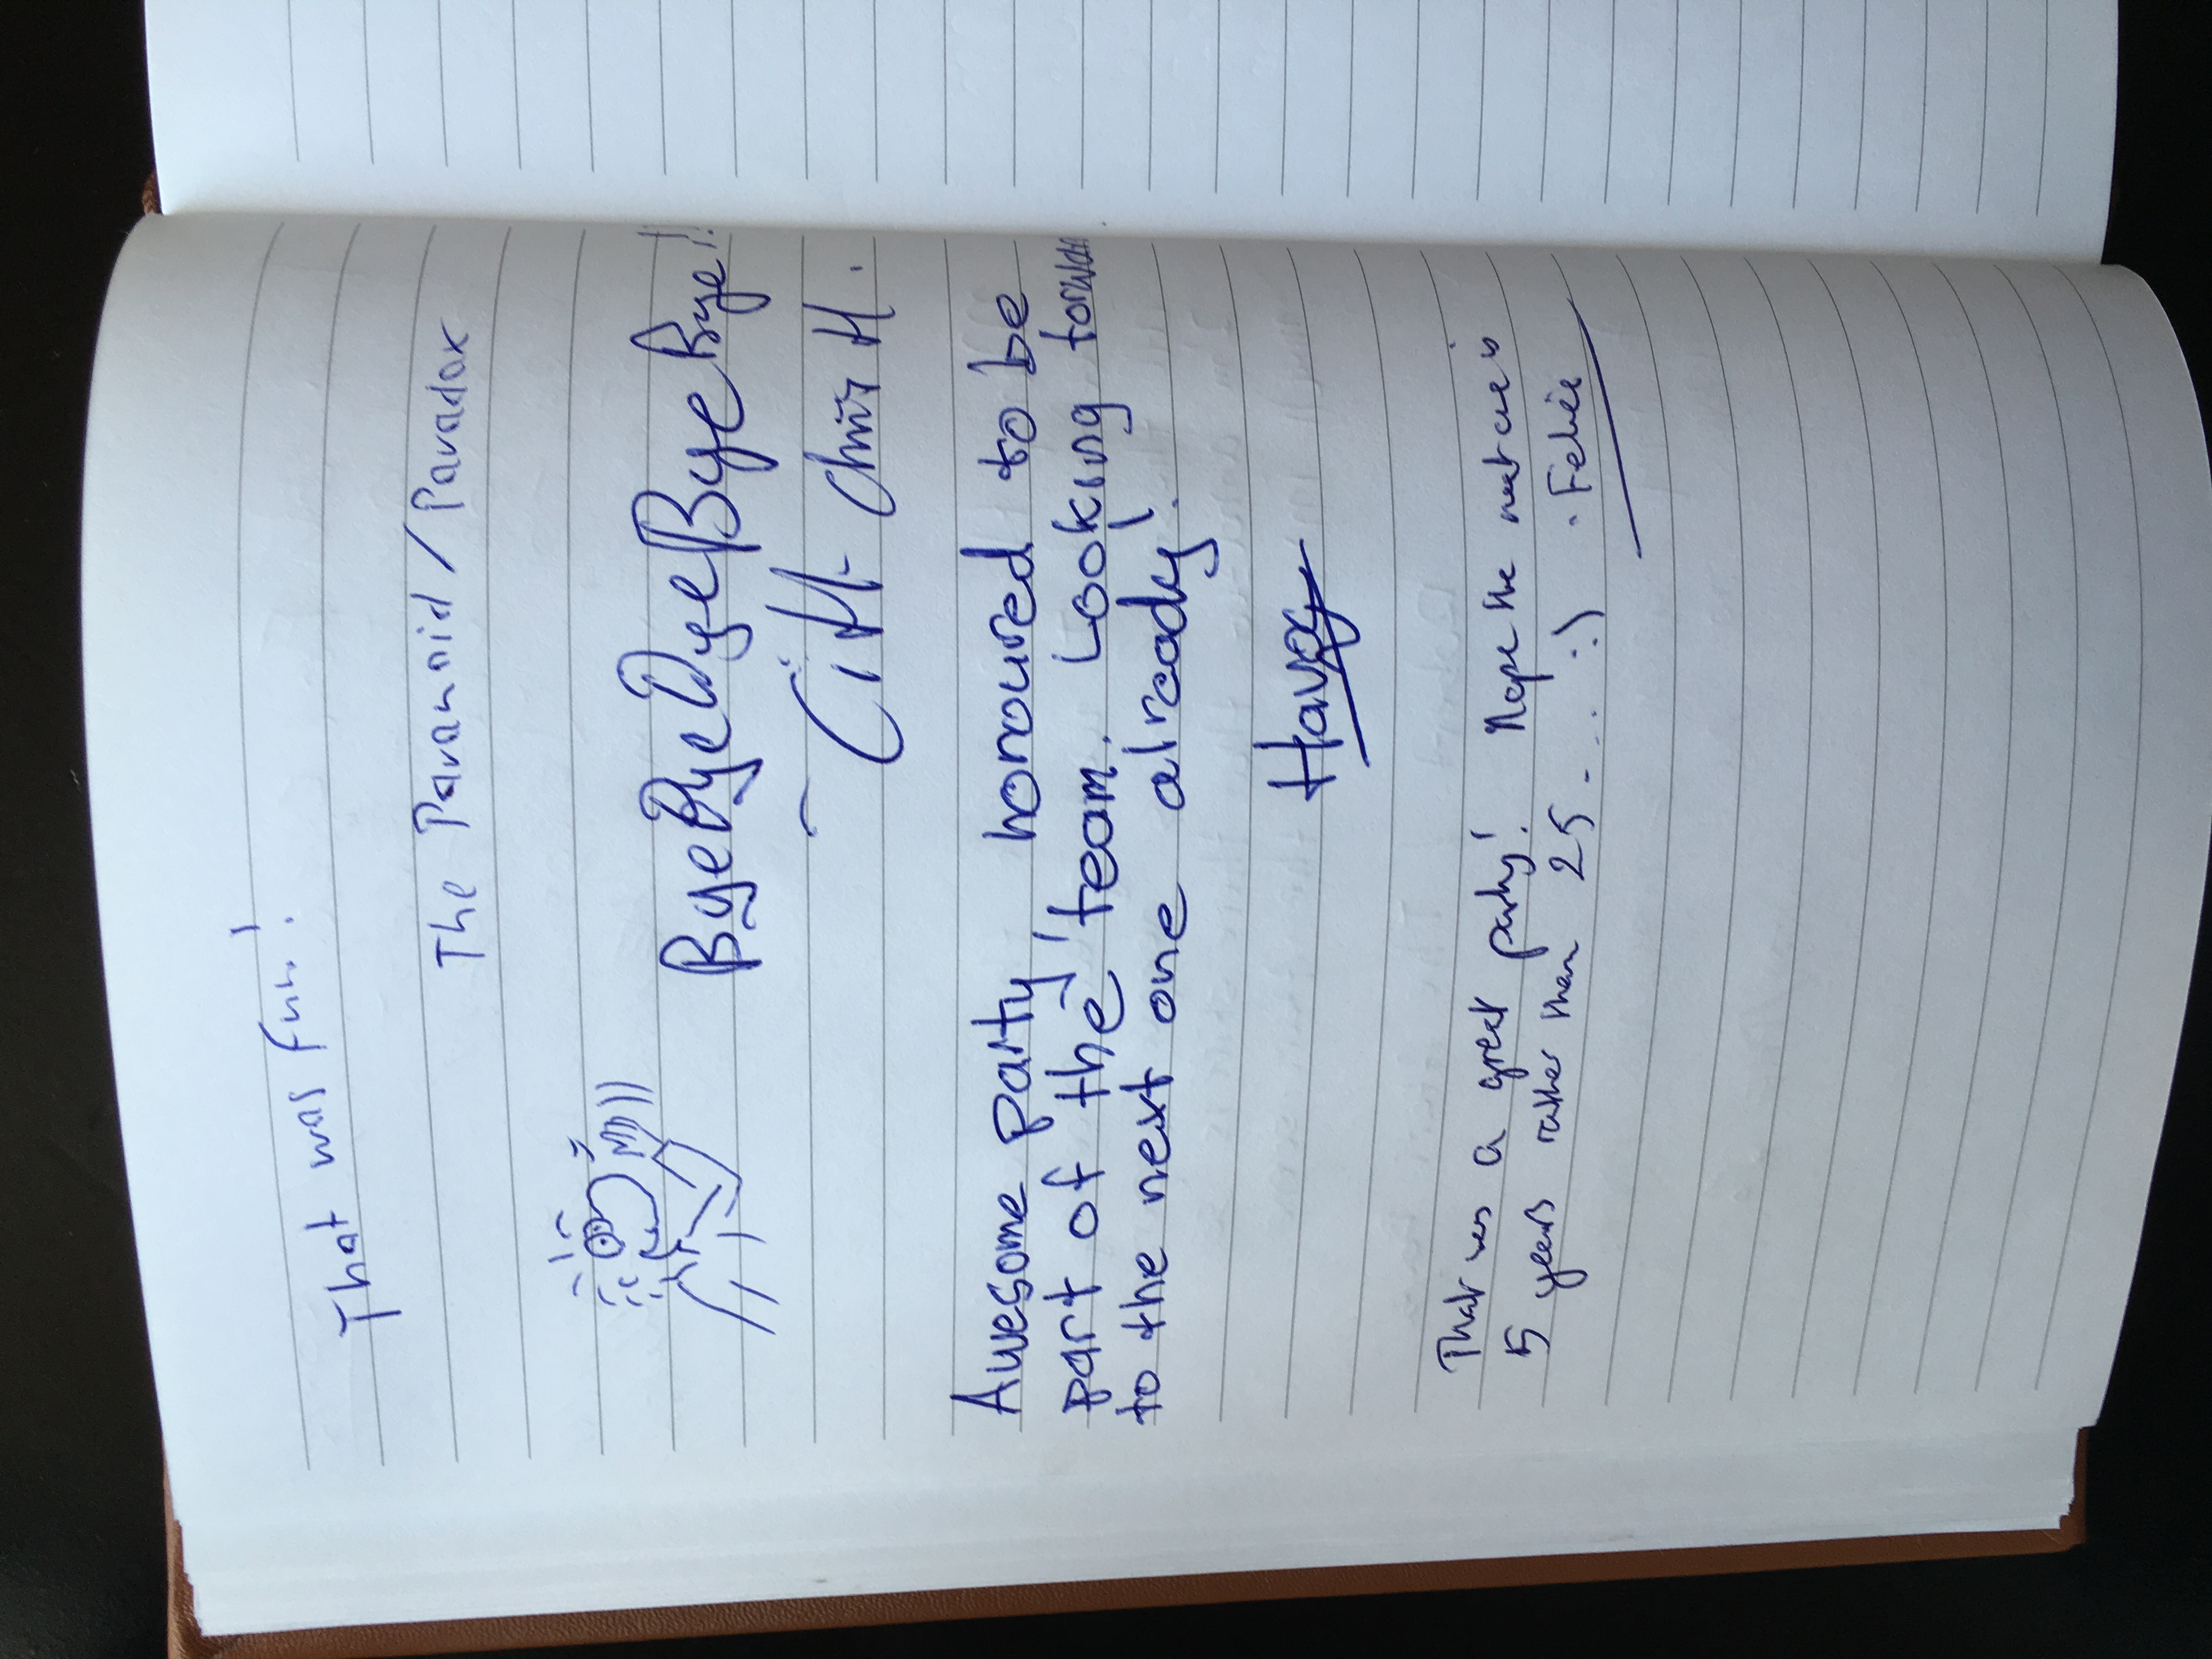 That was fun!
The Paranoid / Paradox
Bye Bye Bye Bye Bye!!
Awesome party! honoured to be
part of the team. Looking forward
to the next one already!
That was a great party! Hope the next one is
5 years rather than 25..... :) - Felix